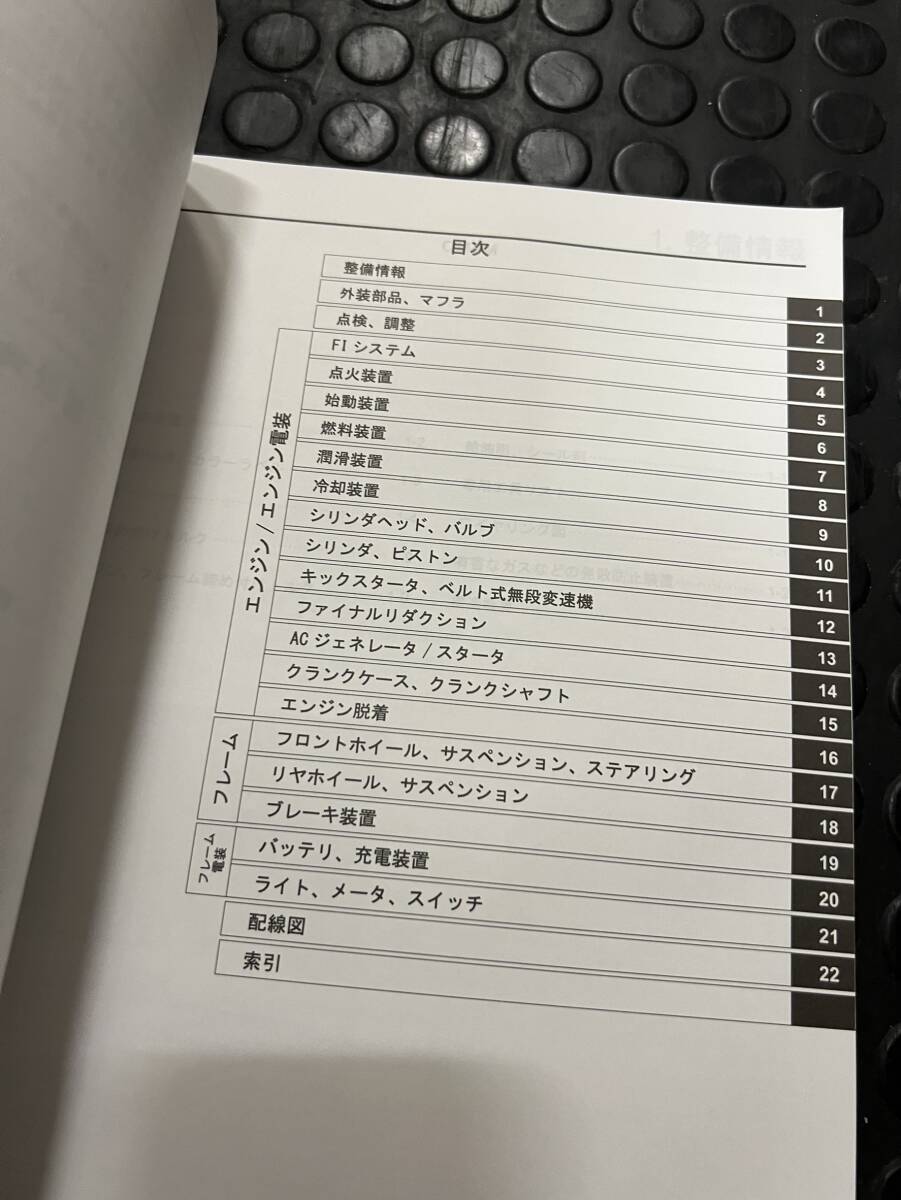 1. 整備情報
目次
整備情報 1
外装部品、マフラ 2
点検、調整 3
エンジン/エンジン電装
FI システム 4
点火装置 5
始動装置 6
燃料装置 7
潤滑装置 8
冷却装置 9
シリンダヘッド、バルブ 10
シリンダ、ピストン 11
キックスタータ、ベルト式無段変速機 12
ファイナルリダクション 13
AC ジェネレータ / スタータ 14
クランクケース、クランクシャフト 15
エンジン脱着 16
フレーム
フロントホイール、サスペンション、ステアリング 17
リヤホイール、サスペンション 18
ブレーキ装置 19
フレーム
電装
バッテリ、充電装置 20
ライト、メータ、スイッチ 21
配線図 22
索引